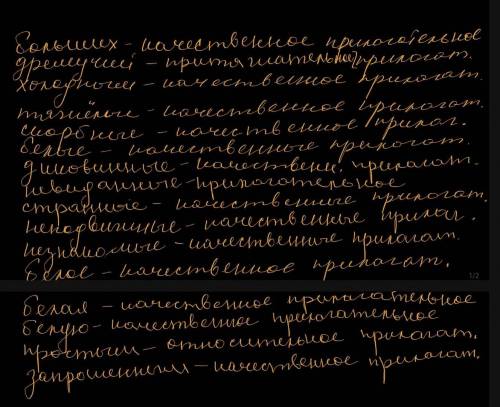 больших - качественное прилагательное
дремучий - притяжательное прилагат.
холодный - качественное прилагат.
тяжёлые - качественное прилагат.
скорбные - качественное прилаг.
белые - качественные прилагат.
диковинные - качествени. прилагат.
невиданные - прилагательное
странные - качественные прилагат.
неподвижные - качественные прилаг.
незнакомые - качественные прилагат.
белое - качественное прилагат.
1/2
белая - качественное прилагательное
белую - качественное прилагательное
простым - относительное прилагат.
запрошенным - качественное прилагат.